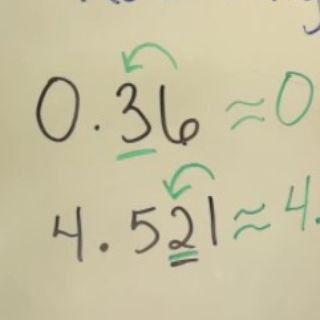 0.36 ≈ 0
4.521 ≈ 4.